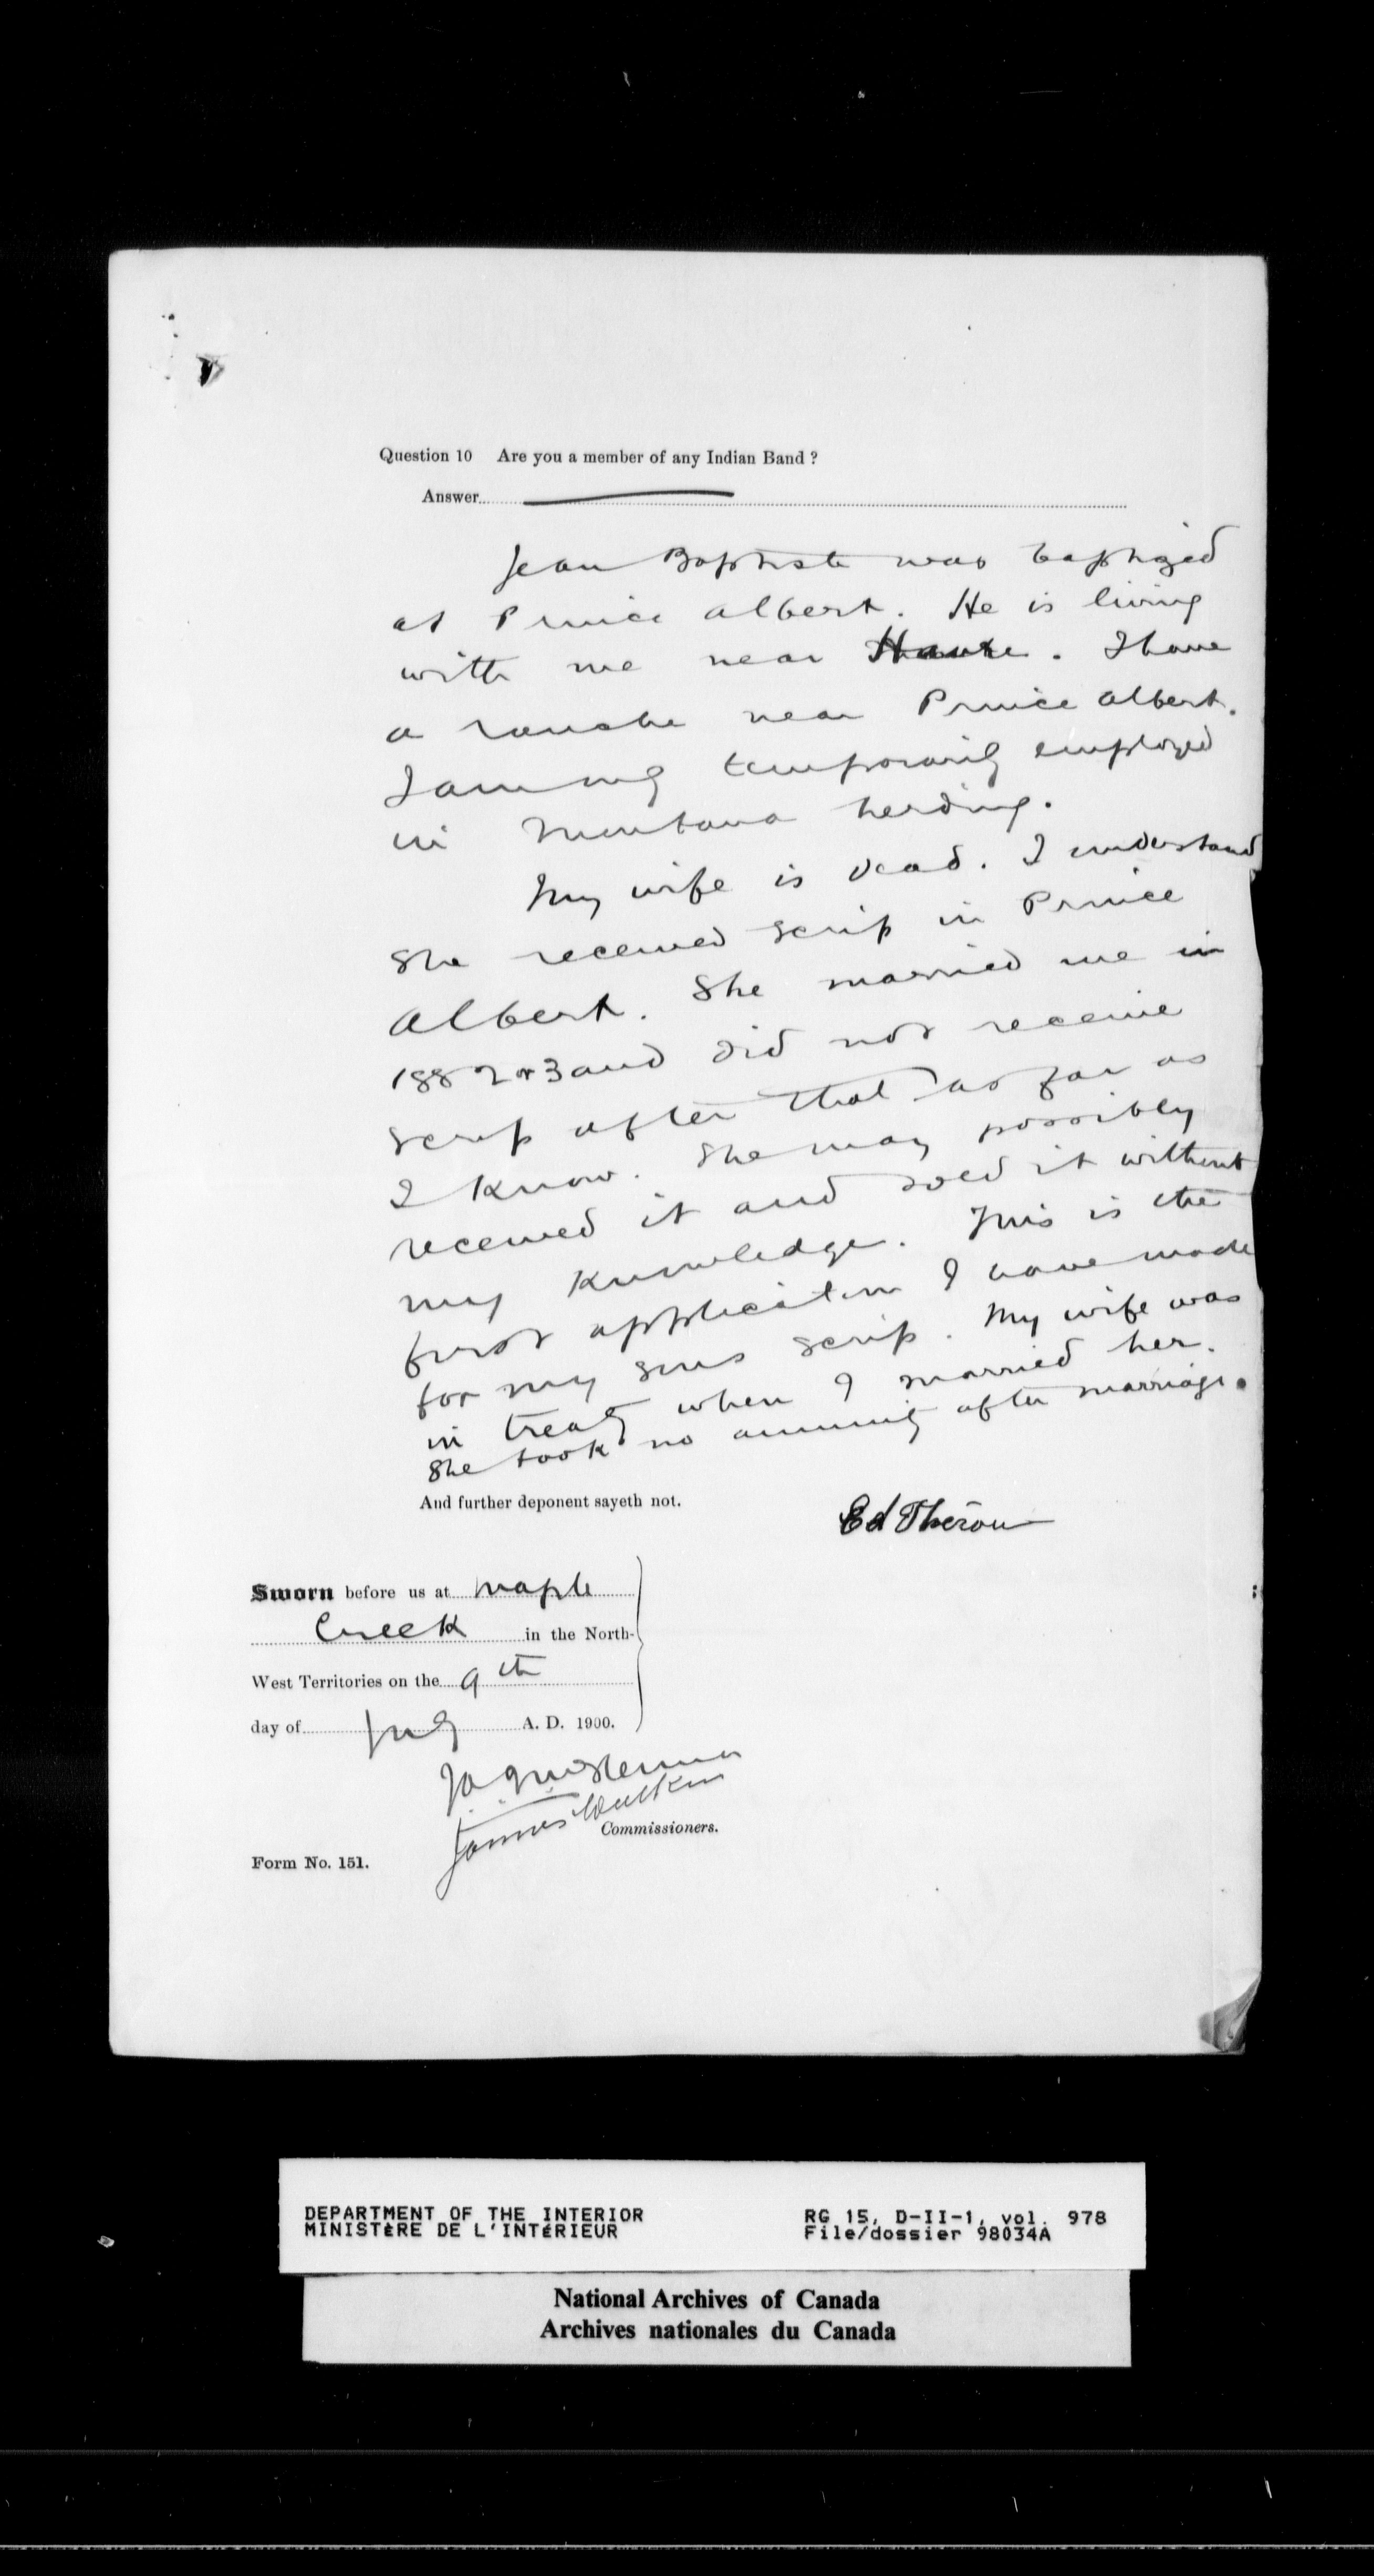 Question 10 Are you a member of any Indian Band ?
Answer
Jean Baptiste was baptized
at Prince Albert. He is living
with me near Havre. I have
a ranche near Prince Albert.
I am only temporarily employed
in Montana herding.
My wife is dead. I understand
she received scrip in Prince
Albert. She married me in
1882 or 3 and did not receive
scrip after that as far as
I know. She may possibly
received it and sold it without
my knowledge. This is the
first application I have made
for my sons scrip. My wife was
in treaty when I married her.
She took no annuity after marriage.
And further deponent sayeth not.
Ed Therou
Sworn before us at Maple
Creek in the North-
West Territories on the 9th
day of July A. D. 1900.
James Walker
Commissioners.
Form No. 151.
DEPARTMENT OF THE INTERIOR RG 15, D-II-1, vol. 978
MINISTÈRE DE L'INTÉRIEUR File/dossier 98034A
National Archives of Canada
Archives nationales du Canada